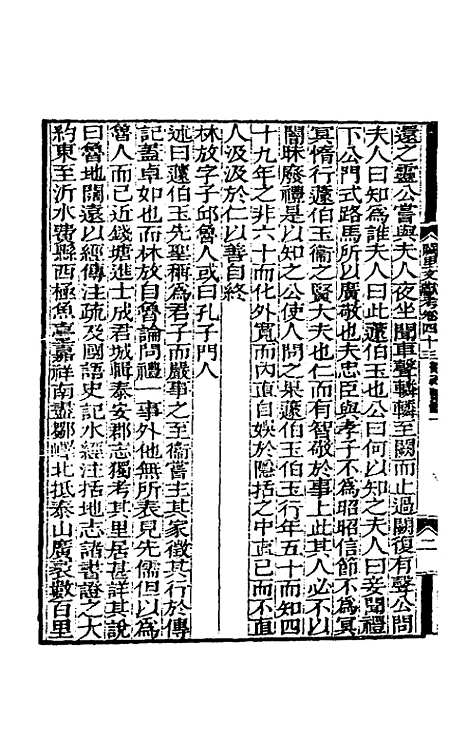 闕里文獻考卷四十三
二
還之靈公嘗與夫人夜坐聞車聲轔轔至闕而止過闕復有聲公問
夫人曰知為誰夫人曰此蘧伯玉也公曰何以知之夫人曰妾聞禮
下公門式路馬所以廣敬也夫忠臣與孝子不為昭昭信節不為冥
冥惰行蘧伯玉衞之賢大夫也仁而有智敬於事上此其人必不以
闇昧廢禮是以知之公使人問之果蘧伯玉伯玉行年五十而知四
十九年之非六十而化外寬而內直自娛於隱括之中直已而不直
人汲汲於仁以善自終
林放字子邱魯人或曰孔子門人
述曰蘧伯玉先聖稱為君子而嚴事之至衞嘗主其家徵其行於傳
記蓋卓如也而林放自魯論問禮一事外他無所表見先儒但以為
魯人而已近錢塘進士成君城輯泰安郡志獨考其里居甚詳其說
曰魯地闊遠以經傳注疏及國語史記水經注括地志諸書證之大
約東至沂水費縣西極魚臺嘉祥南盡鄒嶧北抵泰山廣袤數百里